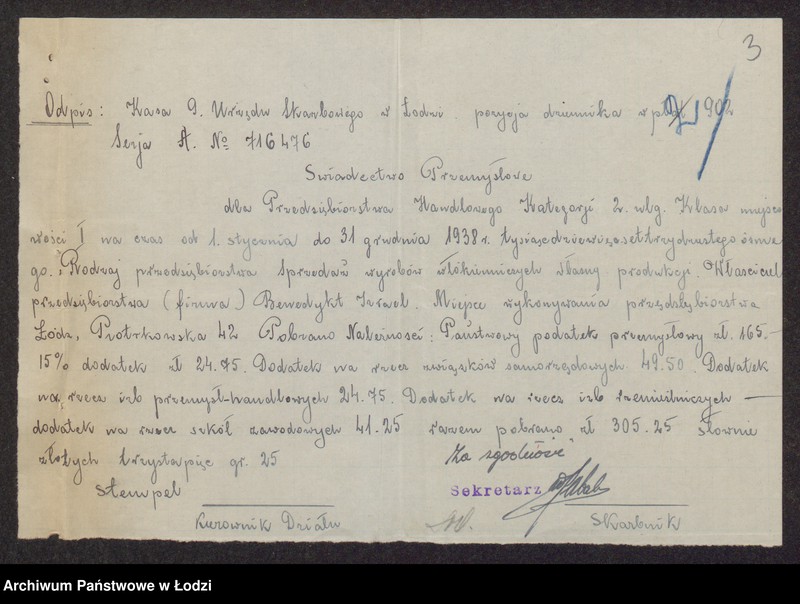 3
Odpis: Kasa 9. Urzędu Skarbowego w Łodzi. pozycja dziennika 902
Serja A. № 716476
Świadectwo Przemysłowe
dla Przedsiębiorstwa Handlowego Kategorji 2. wbg. Klasa miejsco
wości I na czas od 1. stycznia do 31 grudnia 1938 r. tysiącdziewięćsettrzydziestego ósme
go. Rodzaj przedsiębiorstwa Sprzedaż wyrobów włókienniczych własnej produkcji. Właściciel
przedsiębiorstwa (firma) Benedykt Izrael. Miejsce wykonywania przedsiębiorstwa
Łódź, Piotrkowska 42 Pobrano Należności: Państwowy podatek przemysłowy zł. 165.-
15% dodatek zł 24.75. Dodatek na rzecz związków samorządowych 49.50. Dodatek
na rzecz izb przemysł-handlowych 24.75. Dodatek na rzecz izb rzemieślniczych —
dodatek na rzecz szkół zawodowych 41.25 razem pobrano zł 305.25 słownie
złotych trzystapięć gr. 25
Za zgodność
Stempel
Sekretarz
Kierownik Działu
Skarbnik
Archiwum Państwowe w Łodzi